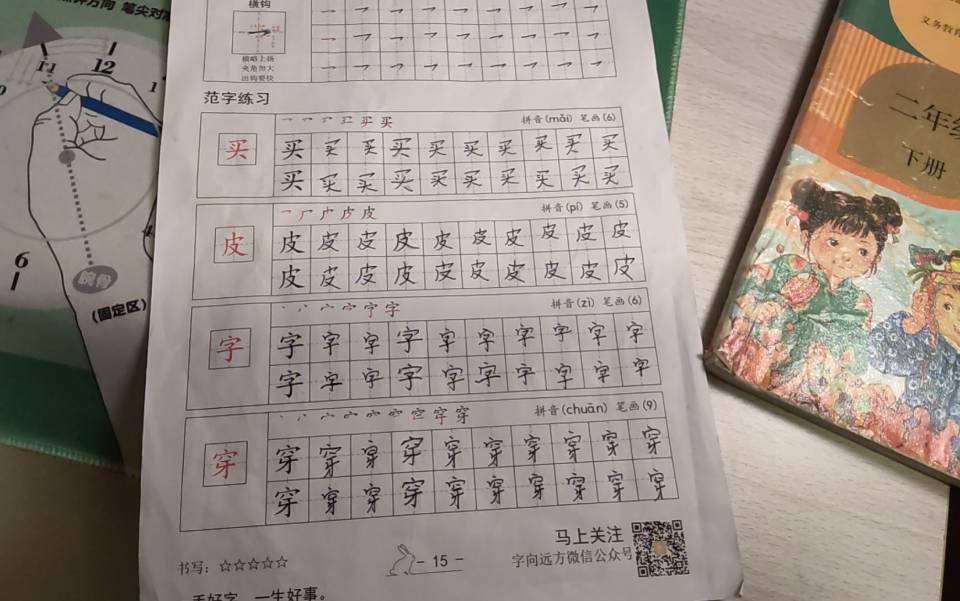 笔尖对准
11
12
1
6
腕骨
(固定区)
横钩
横略上扬
夹角勿大
出钩要快
范字练习
一 买 买
拼音(mǎi) 笔画(6)
买 买 买 买 买 买 买 买 买 买 买
买 买 买 买 买 买 买 买 买 买
一 厂 广 皮 皮
拼音(pí) 笔画(5)
皮 皮 皮 皮 皮 皮 皮 皮 皮 皮 皮
皮 皮 皮 皮 皮 皮 皮 皮 皮 皮
宁 字
拼音(zì) 笔画(6)
字 字 字 字 字 字 字 字 字 字 字
字 字 字 字 字 字 字 字 字 字
穴 空 穿 穿
拼音(chuān) 笔画(9)
穿 穿 穿 穿 穿 穿 穿 穿 穿 穿 穿
穿 穿 穿 穿 穿 穿 穿 穿 穿 穿
书写：☆☆☆☆☆
- 15 -
马上关注
字向远方微信公众号
手好字，一生好事。
义务教育
二年级
下册